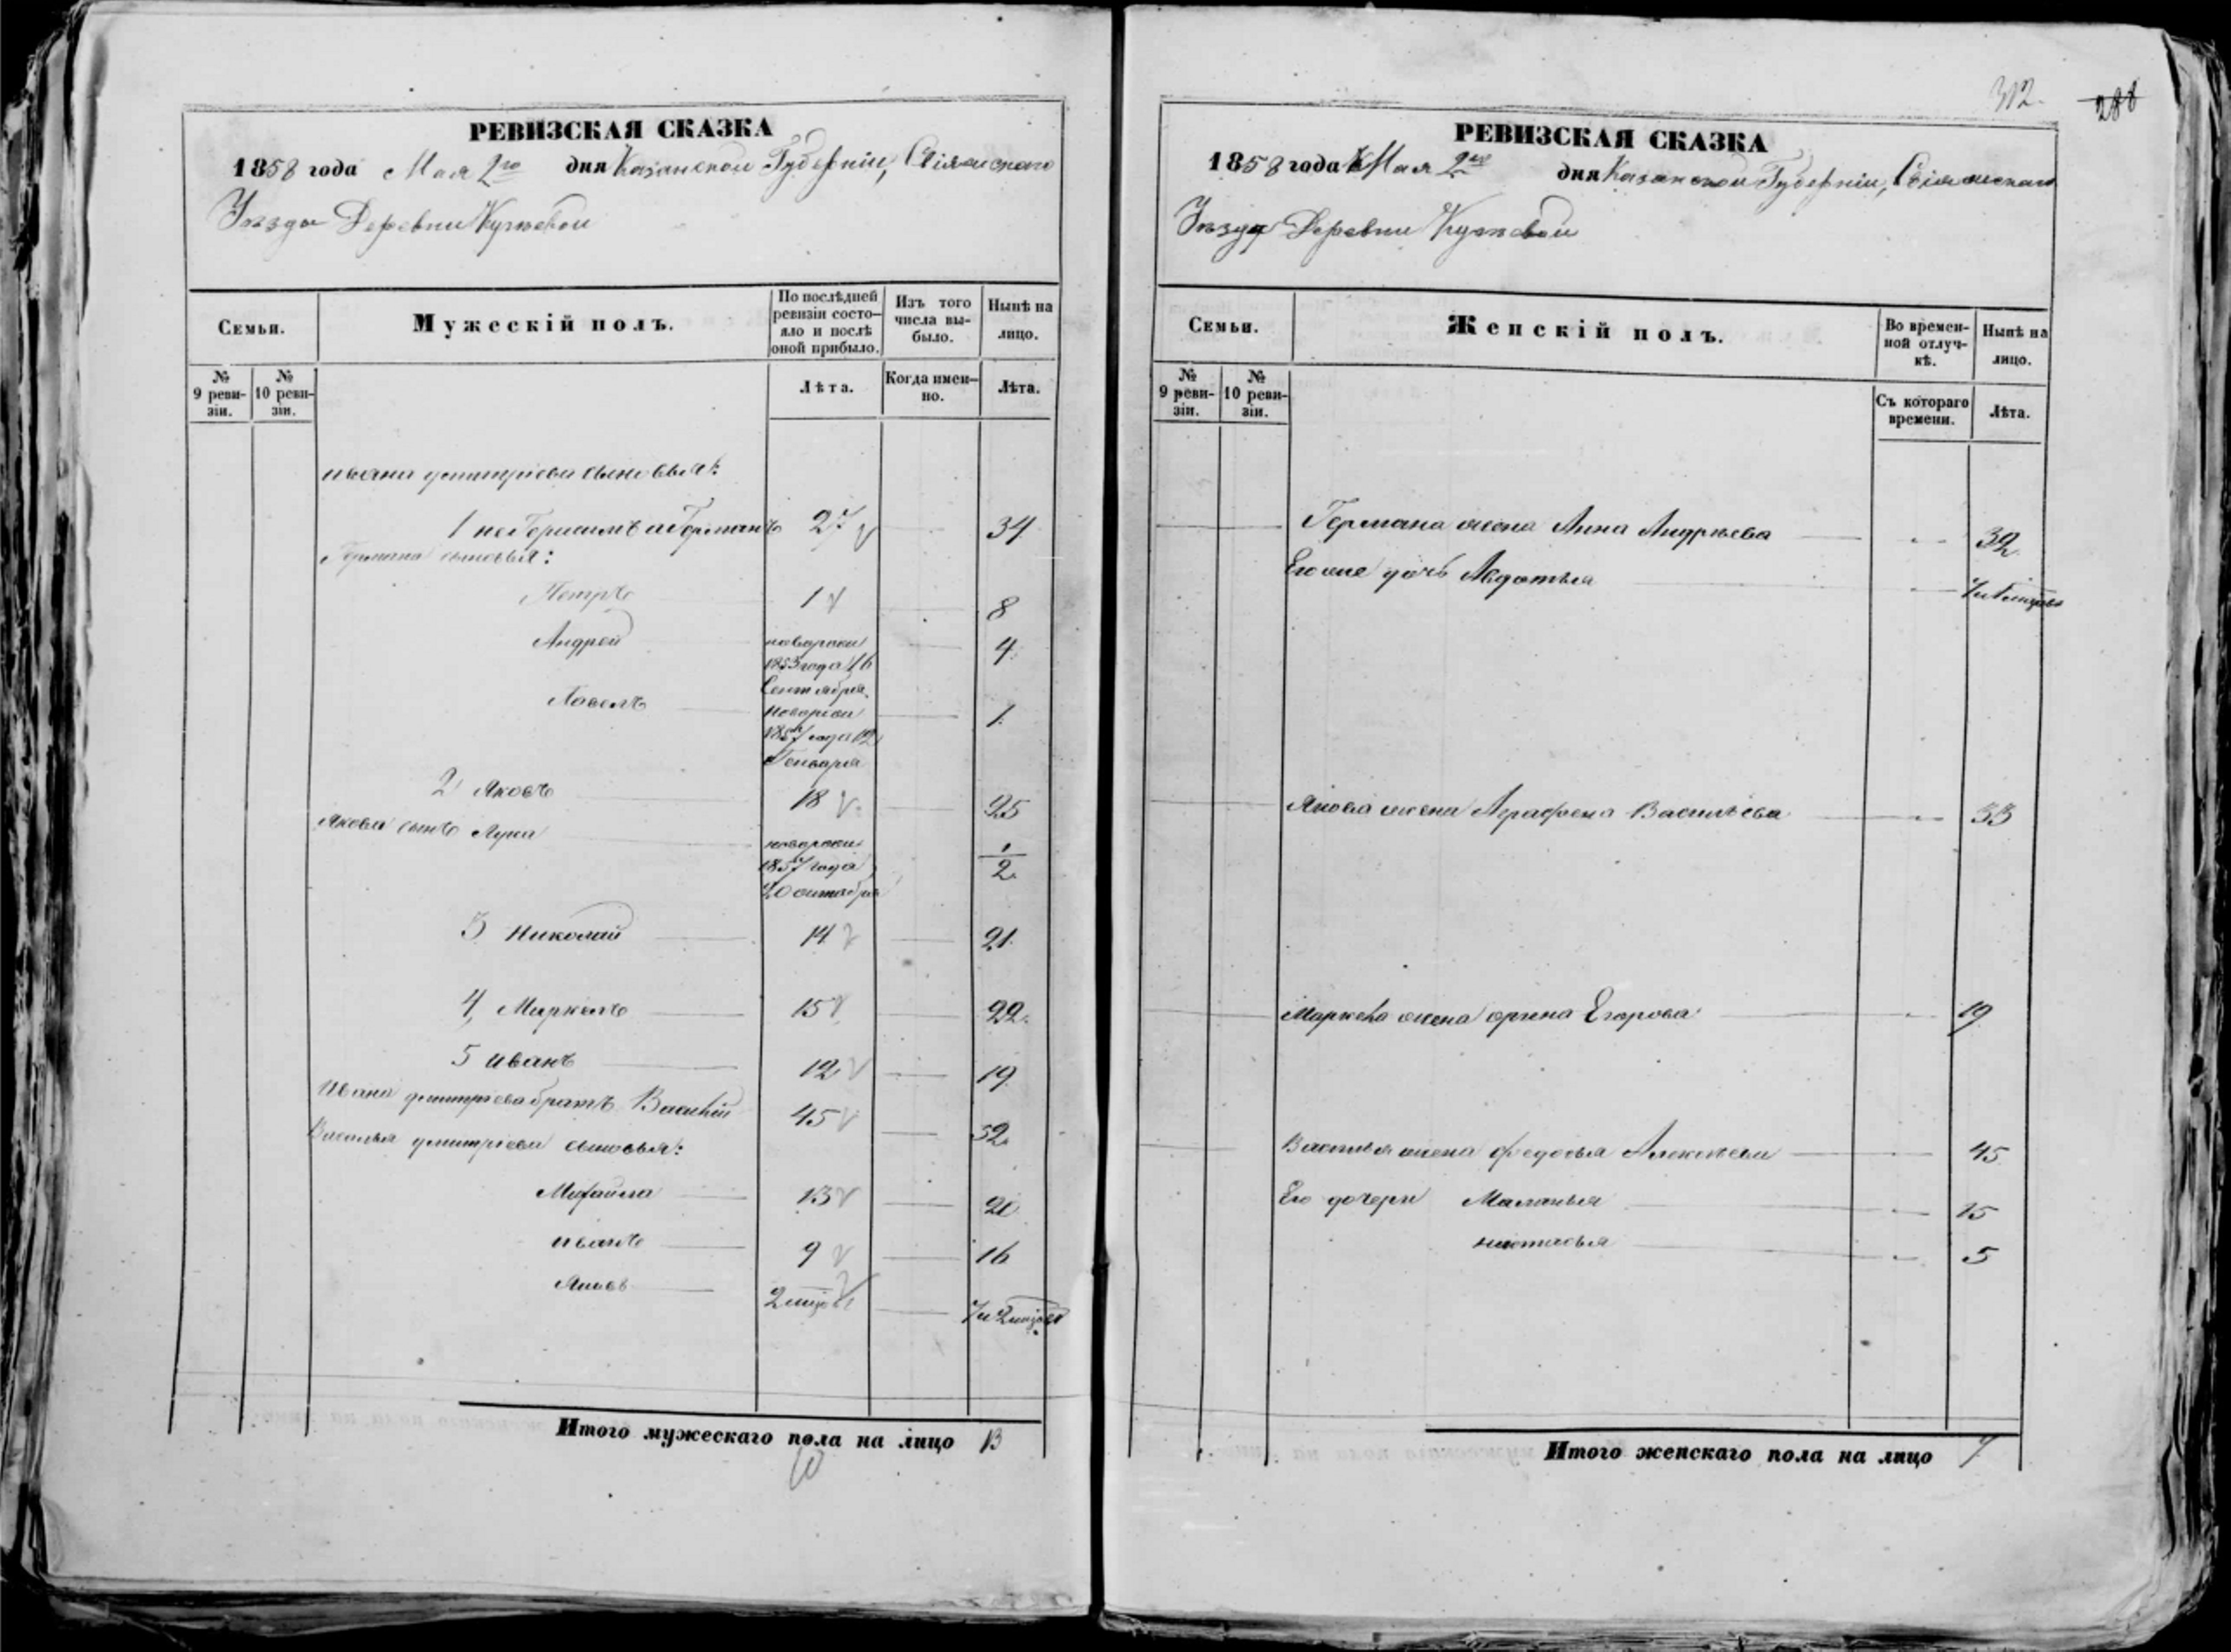 РЕВИЗСКАЯ СКАЗКА
1858 года Мая 2го дня Казанской Губерніи, Свіяжскаго
Уѣзда Деревни
Семьи.
Мужескій полъ.
По послѣдней ревизіи состо-
яло и послѣ
оной прибыло.
Изъ того
числа вы-
было.
Нынѣ на
лицо.
№
9 реви-
зіи.
№
10 реви-
зіи.
Лѣта.
Когда имен-
но.
Лѣта.
ивана дмитріева сыновья:
1 не Герасимъ а Германъ 27 34
Германа сыновья:
Петръ 1 8
Андрей новорож 4
1853 года 16
Сентября
Павелъ новорож 1
1857 года 12
Генваря
2 Яковъ 18 25
Якова сынъ Лука новорож 1/2
1857 года
20 октября
3 Николай 14 21
4 Маркелъ 15 22
5 иванъ 12 19
ивана дмитріева братъ Василій 45 52
Василья дмитріева сыновья:
Михайла 13 20
иванъ 9 16
Яковъ 2 мцов 7 и 2 мцов
Итого мужескаго пола на лицо 13
10
312.
288
РЕВИЗСКАЯ СКАЗКА
1858 года Мая 2го дня Казанской Губерніи, Свіяжскаго
Уѣзда Деревни
Семьи.
Женскій полъ.
Во времен-
ной отлуч-
кѣ.
Нынѣ на
лицо.
№
9 реви-
зіи.
№
10 реви-
зіи.
Съ котораго
времени.
Лѣта.
Германа жена Анна Андрѣева 32
Его же дочь Авдотья
Якова жена Аграфена Васильева 33
Маркела жена орина Егорова 19
Василья жена федосья Алексѣева 45
Его дочери Маланья 15
настасья 5
Итого женскаго пола на лицо 7